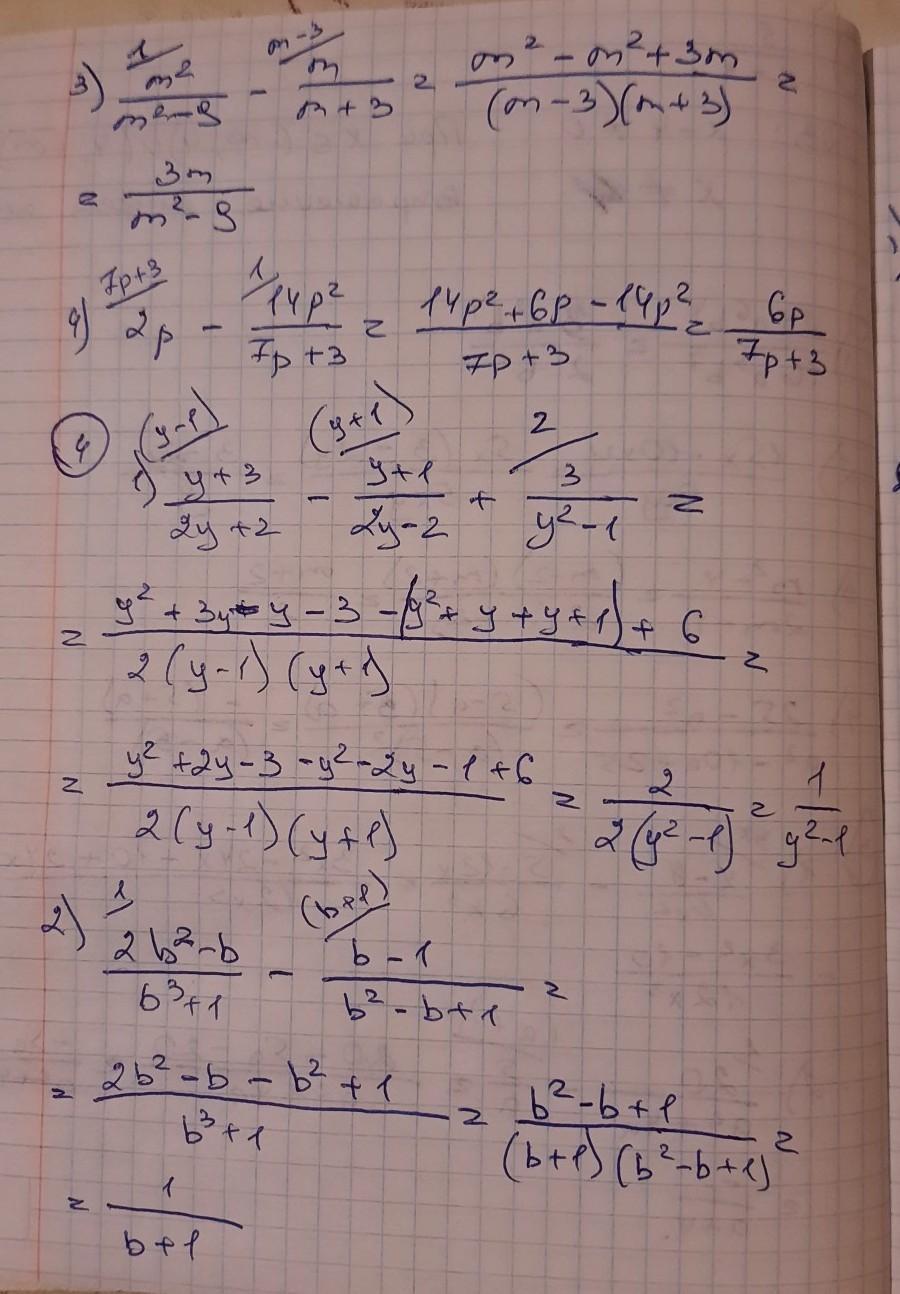 3) m²/(m²-9) (1/ - m/(m+3) (m-3/ = (m² - m² + 3m)/((m-3)(m+3)) =
= 3m/(m²-9)
4) 2p (7p+3/ - 14p²/(7p+3) (1/ = (14p² + 6p - 14p²)/(7p+3) = 6p/(7p+3)
④ 1) (y+3)/(2y+2) (y-1)/ - (y+1)/(2y-2) (y+1)/ + 3/(y²-1) 2/ =
= (y² + 3y - y - 3 - (y² + y + y + 1) + 6)/(2(y-1)(y+1)) =
= (y² + 2y - 3 - y² - 2y - 1 + 6)/(2(y-1)(y+1)) = 2/(2(y²-1)) = 1/(y²-1)
2) (2b²-b)/(b³+1) 1/ - (b-1)/(b²-b+1) (b+1)/ =
= (2b² - b - b² + 1)/(b³+1) = (b²-b+1)/((b+1)(b²-b+1)) =
= 1/(b+1)